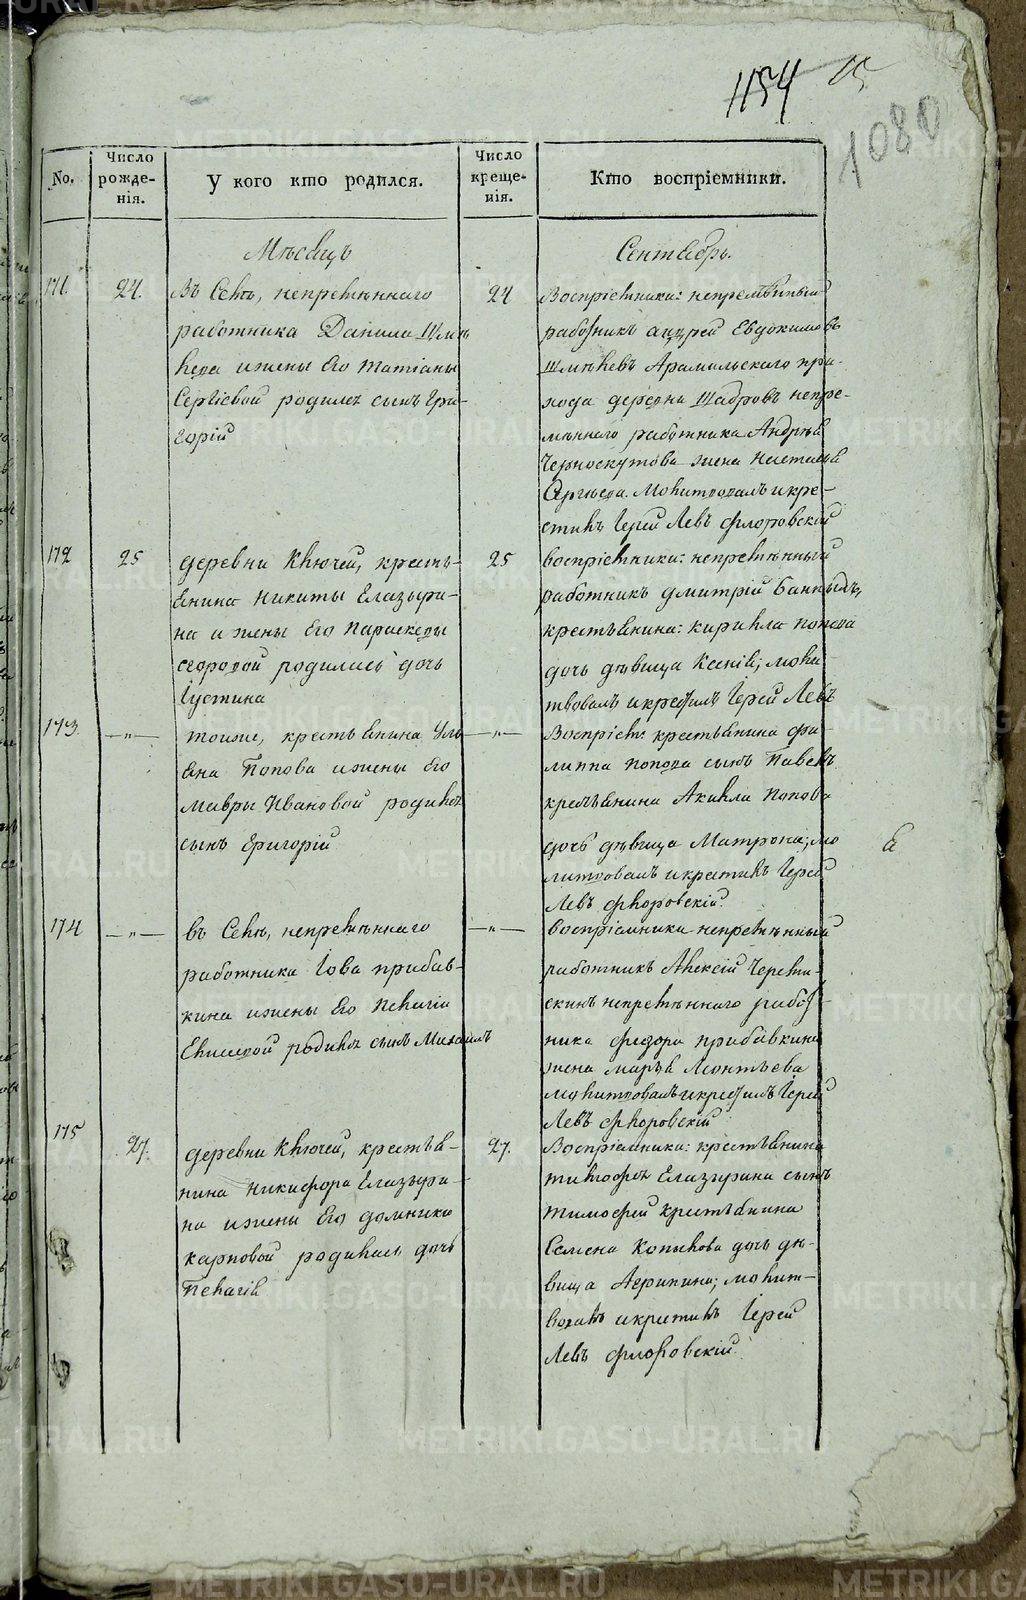 1154
1080
No.
Число рожде-нія.
У кого кто родился.
Число креще-нія.
Кто воспріемники.
Мѣсяцъ
Сентябрь.
171.
24.
Въ Селѣ, непремѣннаго
работника Данила Шмы
кова и жены Его татіаны
Сергіевой родился сынъ Гри-
горій
24
Воспріемники: непремѣнный
работникъ андрей Евдокимовъ
Арамильскаго при-
хода деревни Шабровъ непре-
мѣннаго работника Андрѣя
Черноскутова жена Настасья
Сергѣева. Молитвовалъ и кре-
стилъ Іерей Левъ флоровскій
172
25
деревни Ключей, кресть-
янина Никиты Елазыри-
на и жены Его Параскевы
родилась дочь
Іустина
25
воспріемники: непремѣнный
работникъ дмитрій Банныхъ,
крестьянина: кирилла попова
дочь дѣвица Ксенія; моли-
твовалъ и крестилъ Іерей Левъ
173.
—"—
тоиже, крестьянина Уль
яна Попова и жены Его
мавры Ивановой родился
сынъ Григорій
—"—
Воспріем: крестьянина фи-
липпа попова сынъ Павелъ
крестьянина Акилы Попова
дочь дѣвица Матрона; мо
литвовалъ и крестилъ Іерей
Левъ флоровскій.
174
—"—
въ Селѣ, непремѣннаго
работника Іова прибав-
кина и жены Его Пелагіи
родился сынъ Михаилъ
—"—
воспріемники непремѣнный
работникъ Алексій Черем-
скинъ непремѣннаго работ-
ника федора прибавкина
жена марья Леонтьева
молитвовалъ и крестилъ Іерей
Левъ флоровскій
175
27.
деревни Ключей, крестья-
нина Никифора Елазыри-
на и жены Его домники
карповой родилась дочь
Пелагія
27.
Воспріемники: крестьянина
Елазырина сынъ
тимофей крестьянина
Семена Копылова дочь дѣ-
вица Агрипина; молит-
вовалъ и крестилъ Іерей
Левъ флоровскій.
METRIKI.GASO-URAL.RU